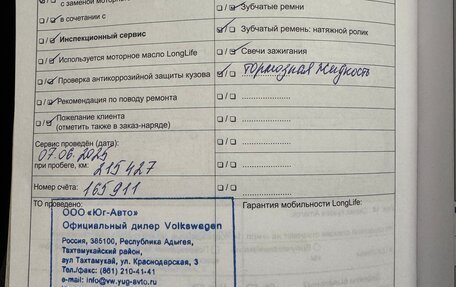 с заменой моторного
☐/☐ Зубчатые ремни
☐/☐ в сочетании с
☐/☐ Зубчатый ремень: натяжной ролик
☐/☐ Инспекционный сервис
☐/☐ Свечи зажигания
☐/☐ Используется моторное масло LongLife
☐/☐ Тормозная жидкость
☐/☐ Проверка антикоррозийной защиты кузова
☐/☐ ......................
☐/☐ Рекомендации по поводу ремонта
☐/☐ ......................
☐/☐ Пожелание клиента
(отметить также в заказ-наряде)
☐/☐ ......................
Сервис проведён (дата):
07.06.2025
☐/☐ ......................
при пробеге, км: 215427
Номер счёта: 165911
☐/☐ ......................
ТО проведено:
Гарантия мобильности LongLife:
ООО «Юг-Авто»
Официальный дилер Volkswagen
Россия, 385100, Республика Адыгея,
Тахтамукайский район,
аул Тахтамукай, ул. Краснодарская, 3
Тел./факс: (861) 210-41-41
e-mail: info@vw.yug-avto.ru